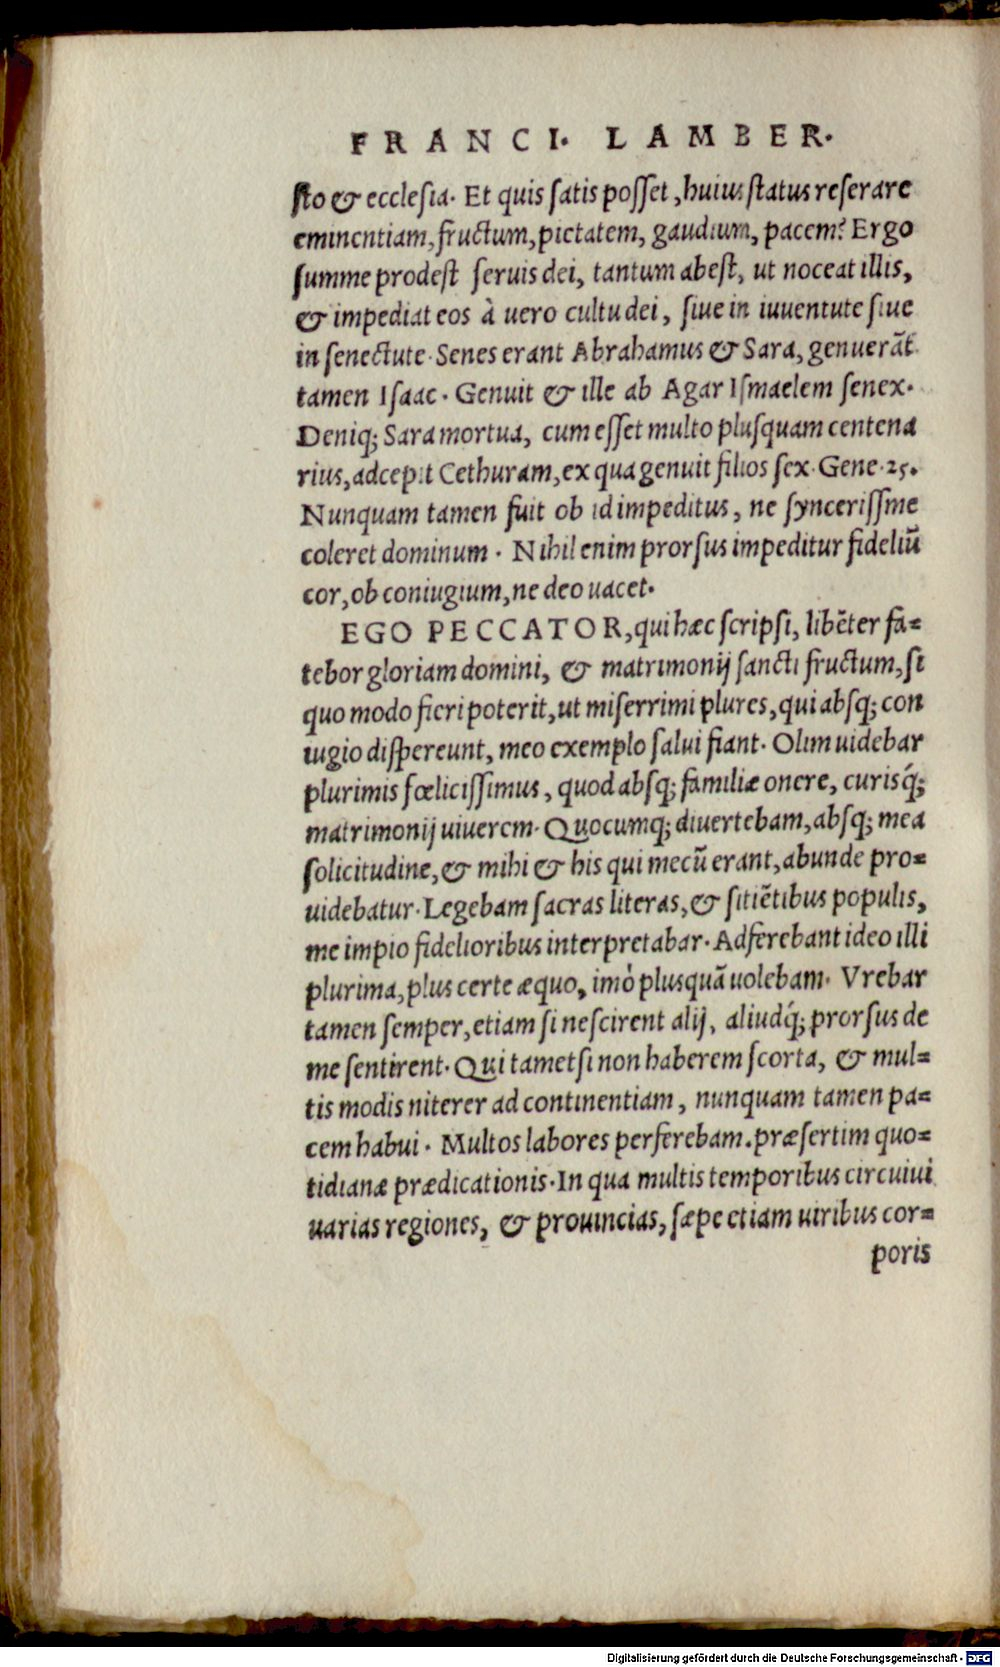 FRANCI. LAMBER.
ſto & ecclesia. Et quis ſatis poſſet, huius ſtatus reſerare
eminentiam, fructum, pietatem, gaudium, pacem? Ergo
ſumme prodeſt ſeruis dei, tantum abeſt, ut noceat illis,
& impediat eos à uero cultu dei, ſiue in iuuentute ſiue
in ſenectute. Senes erant Abrahamus & Sara, genuerãt
tamen Iſaac. Genuit & ille ab Agar Iſmaelem ſenex.
Deniq; Sara mortua, cum eſſet multo pluſquam centena
rius, adcepit Cethuram, ex qua genuit filios ſex. Gene. 25.
Nunquam tamen fuit ob id impeditus, ne ſynceriſſme
coleret dominum. Nihil enim prorſus impeditur fideliũ
cor, ob coniugium, ne deo uacet.
EGO PECCATOR, qui hæc ſcripſi, libẽter fa=
tebor gloriam domini, & matrimonij ſancti fructum, ſi
quo modo fieri poterit, ut miſerrimi plures, qui abſq; con
iugio diſpereunt, meo exemplo ſalui fiant. Olim uidebar
plurimis fœliciſſimus, quod abſq; familiæ onere, curisq́;
matrimonij uiuerem. Quocumq; diuertebam, abſq; mea
ſolicitudine, & mihi & his qui mecũ erant, abunde pro=
uidebatur. Legebam ſacras literas, & ſitiẽtibus populis,
me impio fidelioribus interpretabar. Adferebant ideo illi
plurima, plus certe æquo, imò plusquã uolebam. Vrebar
tamen ſemper, etiam ſi neſcirent alij, aliudq́; prorſus de
me ſentirent. Qui tametſi non haberem ſcorta, & mul=
tis modis niterer ad continentiam, nunquam tamen pa=
cem habui. Multos labores perferebam. præſertim quo=
tidianæ prædicationis. In qua multis temporibus circuiui
uarias regiones, & prouincias, ſæpe etiam uiribus cor=
poris
Digitalisierung gefördert durch die Deutsche Forschungsgemeinschaft - DFG